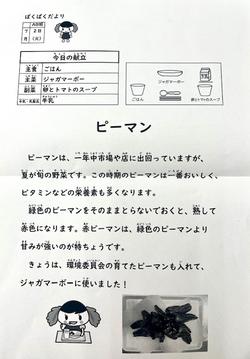 ぱくぱくだより
7月
2日(火)
今日の献立
主食 ごはん
主菜 ジャガマーボー
副菜 卵とトマトのスープ
牛乳・乳製品 牛乳
ジャガマーボー
ごはん
卵とトマトのスープ
ピーマン
ピーマンは、一年中市場や店に出回っていますが、
夏が旬の野菜です。この時期のピーマンは一番おいしく、
ビタミンなどの栄養素も多くなります。
緑色のピーマンをそのままとらないでおくと、熟して
赤色になります。赤ピーマンは、緑色のピーマンより
甘みが強いのが特ちょうです。
きょうは、環境委員会の育てたピーマンも入れて、
ジャガマーボーに使いました!